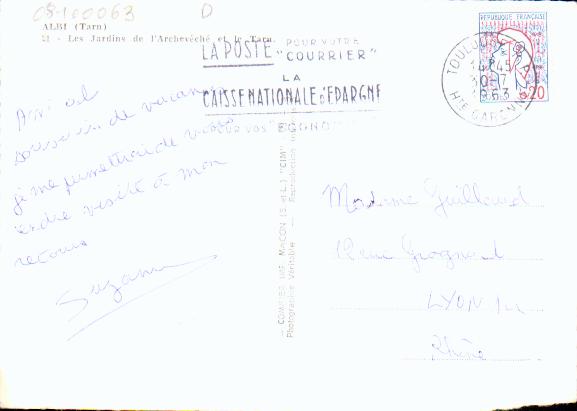 08-160063
D
ALBI (Tarn)
21 - Les Jardins de l'Archevêché et le Tarn.
LA POSTE POUR VOTRE "COURRIER"
LA
CAISSE NATIONALE D'EPARGNE
POUR VOS "ECONO
TOULOUSE
14H45
10-7
1963
HTE GARONNE
REPUBLIQUE FRANÇAISE
0,20
Amical
souvenir de vacances
je me permettrai de vous
rendre visite à mon
retour
Suzanne
COMBIER IMP. MACON (S.-et-L.) "CIM"
Photographie Véritable — Reproduction
Madame Guillaud
Rue Grognard
LYON
Rhône